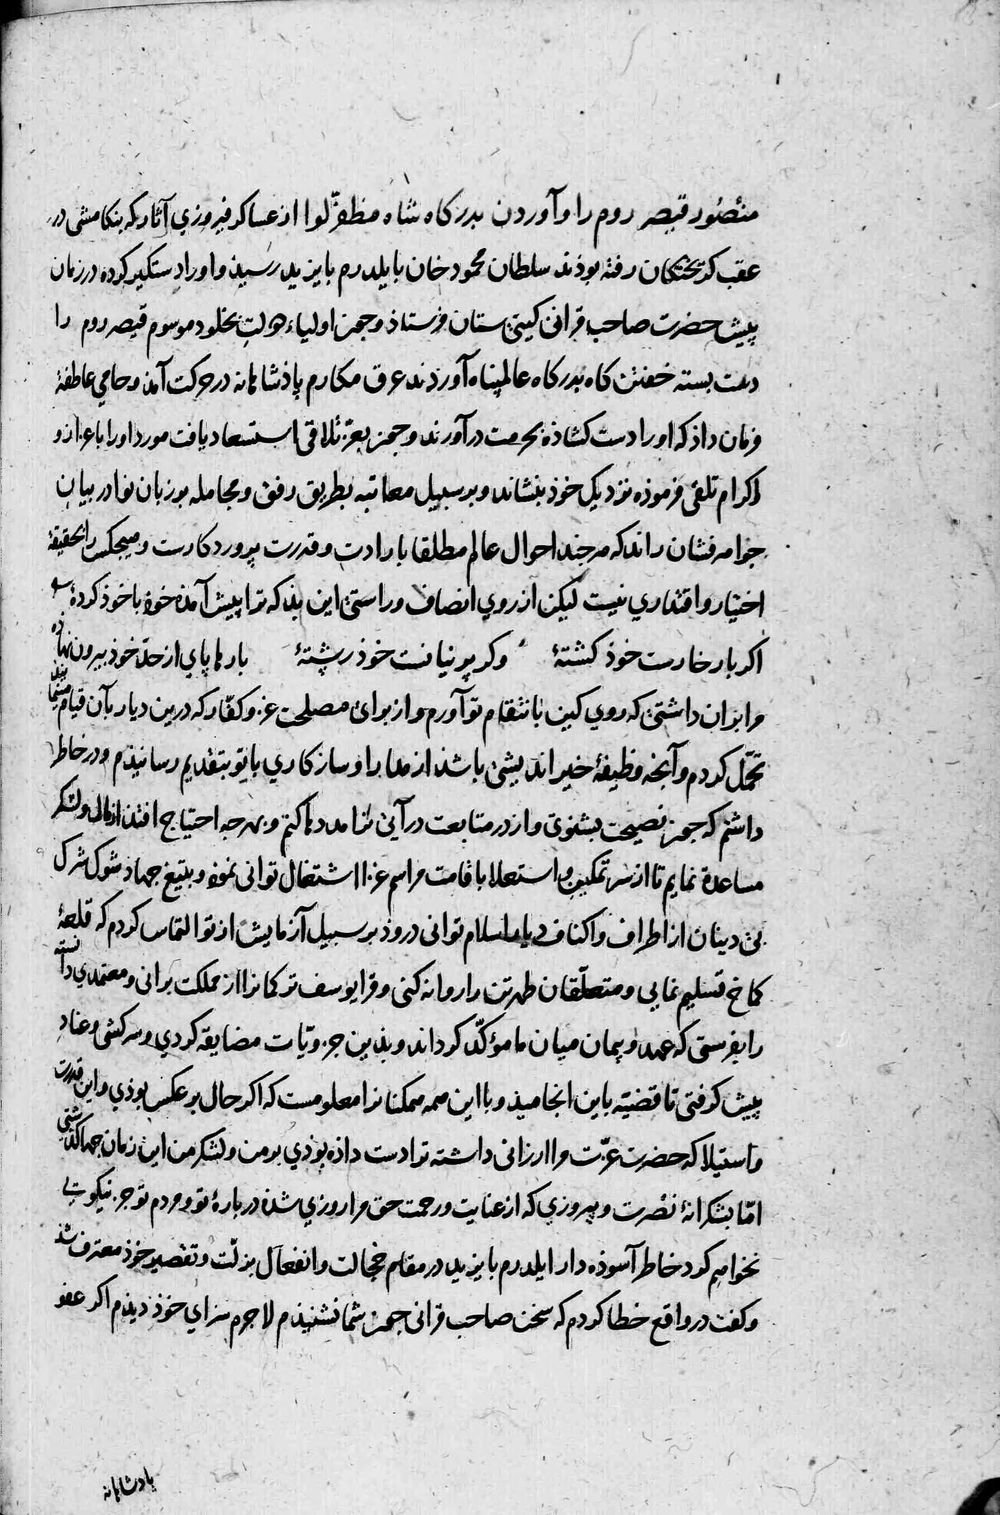 منصور قیصر روم را و آوردن بدرکاه شاه مظفر لوا از عساکر فیروزی آثار که بتکامشی در
عقب کریختکان رفته بودند سلطان محمود خان با یلدرم بایزید رسیذ و او را دستکیر کرده در زمان
پیش حضرت صاحب قرانی کیتی ستان فرستاذ و جمن اولیاء دولت مخلود موسوم قیصر روم را
دست بسته خفتن کاه بدرکاه عالم پناه آوردند عرق مکارم پاذشاهانه در حرکت آمذ و حامی عاطفة
فرمان داذ که او را دست کشاذه بحرمت درآورند و جمن بعز تلاقی استسعاد یافت مورد او را باعزاز و
اکرام تلقی فرموذه نزدیک خوذ بنشاند و بر سبیل معاتبه بطریق رفق و مجامله بر زبان نوادر بیان
جواهر فشان راند که هر جند احوال عالم مطلقا بارادت و قدرت پروردکارست و هیجکس را بحقیقة
اختیار و اقتداری نیست لیکن از روی انصاف و راستی این بذ که ترا پیش آمذه خوذ با خوذ کرده
اکر بار خارست خوذ کشتهٔ وکر پرنیانست خوذ رشتهٔ بارها پای از حد خوذ بیرون نهاده
مرا بران داشتی که روی کین بانتقام تو آورم و از برای مصلحت غزو کفار که درین دیار بآن قیام مینمایند
تحمل کردم و آنجه وظیفهٔ خیر اندیشی باشذ از مدارا و سازکاری با تو بتقدیم رسانیذم و در خاطر
داشتم که جمن نصیحت بشنوی و از در متابعت درآیی ترا مددها کنم و بهرجه احتیاج افتذ از مال و لشکر
مساعدة نمایم تا از سر تمکین و استعلا باقامت مراسم غزا اشتغال توانی نموذ و بتیغ جهاد شوک شرک
بی دینان از اطراف و اکناف دیار اسلام توانی دروذ بر سبیل آزمایش از تو التماس کردم که قلعهٔ
کماخ تسلیم نمایی و متعلقان طهرتن را روانه کنی و قرا یوسف ترکمانرا از مملکت برانی و معتمدی دانسته
را بفرستی که عهد و پیمان میان ما مؤکد کرداند و بذین جزویات مضایقه کردی و سرکشی و عناد
پیش کرفتی تا قضیه باین انجامیذ و با این همه همکنانرا معلومست که اکر حال بر عکس بوذی و این قدرت
و استیلا که حضرت عزت مرا ارزانی داشته ترا دست داذه بوذی بر من و لشکر من این زمان جها کذشتی
امّا بشکرانهٔ نصرت و پیروزی که از عنایت و رحمت حق مرا روزی شذ در بارهٔ تو و مردم تو جز نیکویی
نخواهم کرد خاطر آسوذه دار ایلدرم بایزید در مقام خجالت و انفعال بزلت و تقصیر خوذ معترف شذ
و کفت در واقع خطا کردم که سخن صاحب قرانی جمن شما نشنیذم لاجرم سزای خوذ دیذم اکر عفو
پادشاهانه